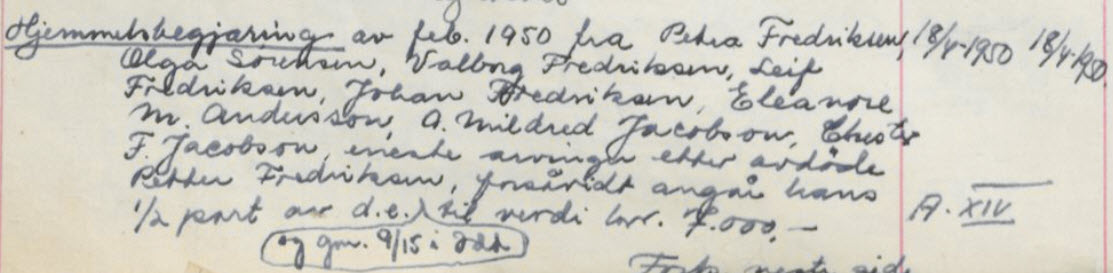 Hjemmelsbegjæring av feb. 1950 fra Petra Fredriksen, 18/4-1950 18/4-1950
Olga Sørensen, Valborg Fredriksen, Leif
Fredriksen, Johan Fredriksen, Eleanore
M. Andersson, A. Mildred Jacobson, Chester
F. Jacobson, eneste arvinger etter avdöde
Petter Fredriksen, forsåvidt angår hans
1/2 part av d.e.) til verdi kr. 7.000,- A. XIV
og gnr. 9/15 i
Forts. neste side